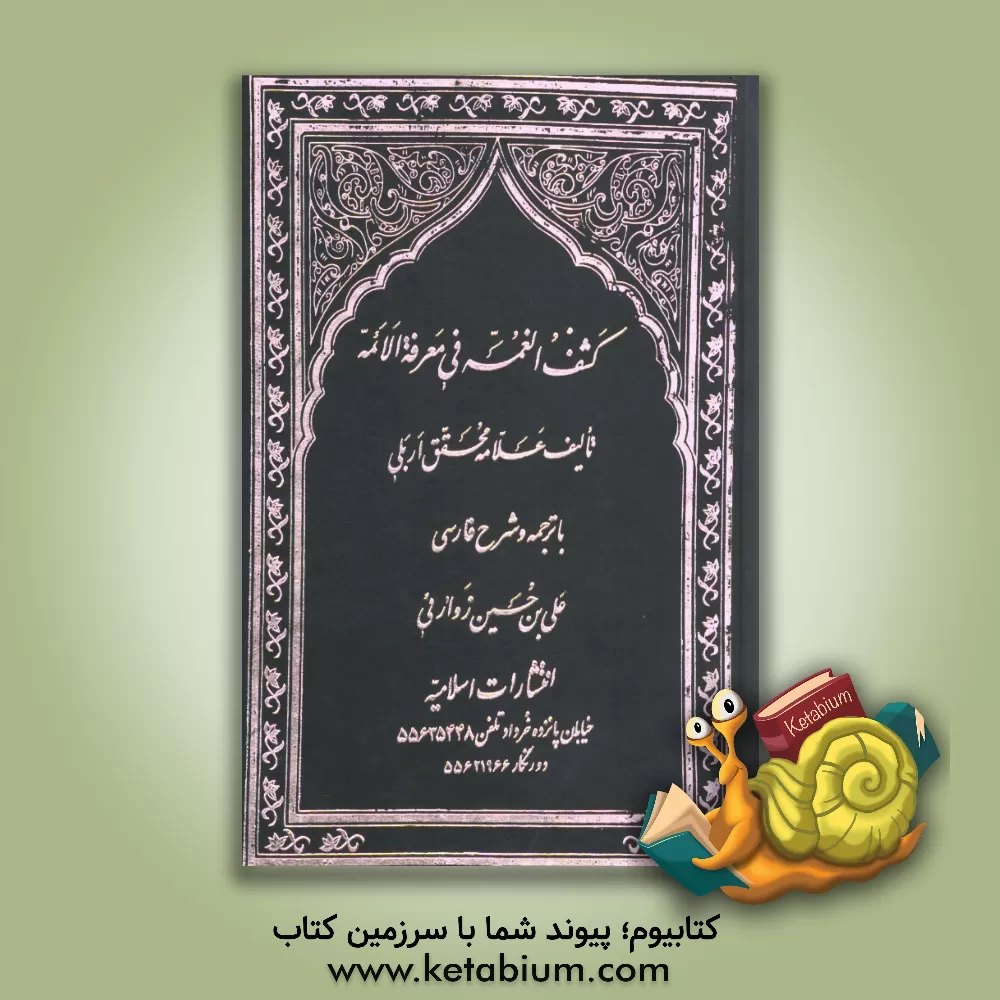 کشف الغمه فی معرفة الائمه
تألیف علامه محقق اربلی
با ترجمه و شرح فارسی
علی بن حسین زوارئی
انتشارات اسلامیه
خیابان پانزده خرداد تلفن ۵۵۶۳۵۴۴۸
دورنگار ۵۵۶۲۱۹۶۶
Ketabium
کتابیوم؛ پیوند شما با سرزمین کتاب
www.ketabium.com